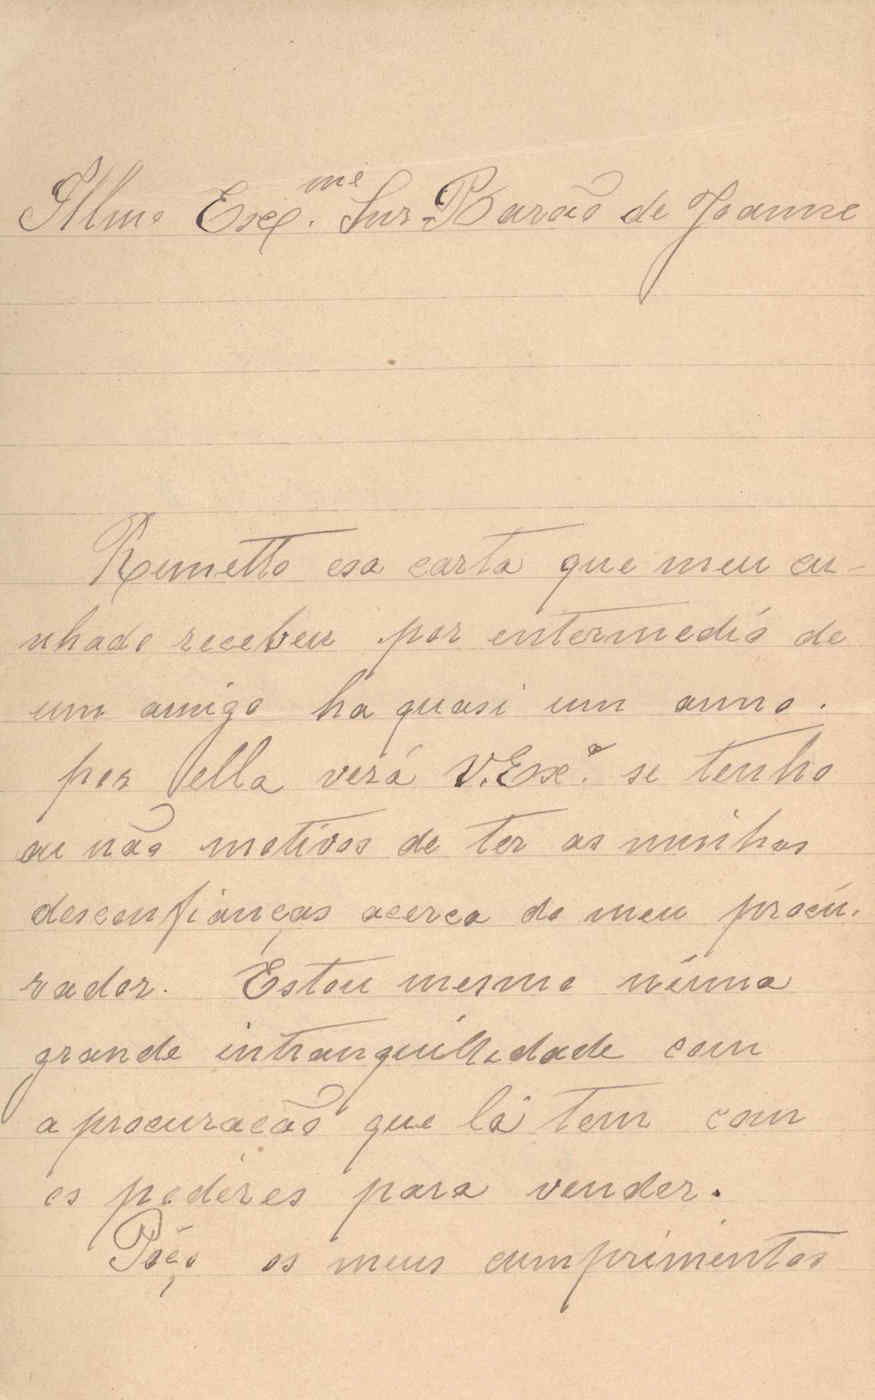 Illmo Exmº. Snr. Barão de Joanne
Remetto esa carta que meu cu-
nhado recebeu por entermedió de
um amigo ha quasi um anno.
por ella verá V. Exª. se tenho
ou não motivos de ter as minhas
desconfianças acerca do meu procú-
rador. Estou mesmo núma
grande intranquillidade com
a procuracão que lá tem com
os podéres para vender.
Póço os meus cumprimentos